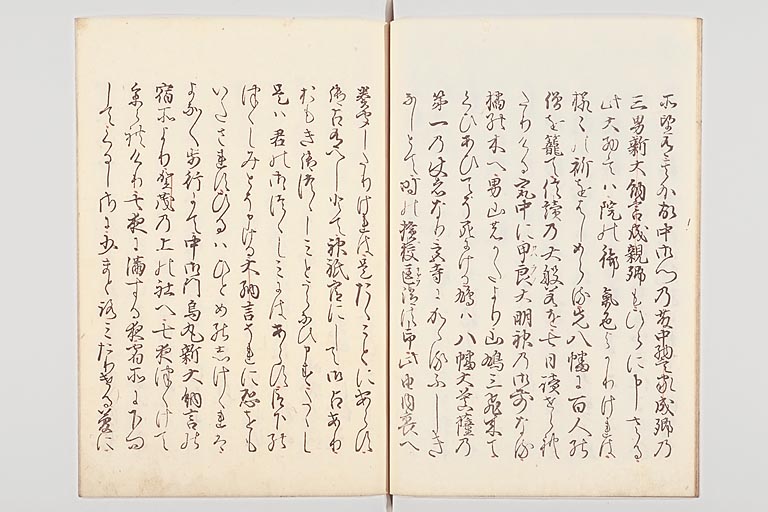 所望有其外故中御門の藤中納言家成卿の
三男新大納言成親卿もひらに申されける
此大納言は院の御気色よかりけれは
様々の祈をはしめらる先八幡に百人の
僧を籠て信読の大般若を七日読せられ
たりける最中に甲良大明神の御前なる
橘の木へ男山のかたより山鳩三飛来て
くひあひてそ死にける鳩は八幡大菩薩の
第一の仕者なり宮寺にかゝるふしき
なしとて時の検校匡清法印此由内裏へ
奏聞したりけれは是たゝことにあらす
御占有へしとて神祇官にして御占あり
おもき御つゝしみとうらなひ申すたゝし
是は君の御つゝしみにはあらす臣下の
つゝしみとそ申ける大納言それに恐をも
いたされすひるはひとめのしけけれは
よな〳〵歩行にて中御門烏丸新大納言の
宿所より賀茂の上の社へ七夜つゝけて
参られけり七夜に満する夜宿所に下向
してくるしさにちとまとろみたりける夢に